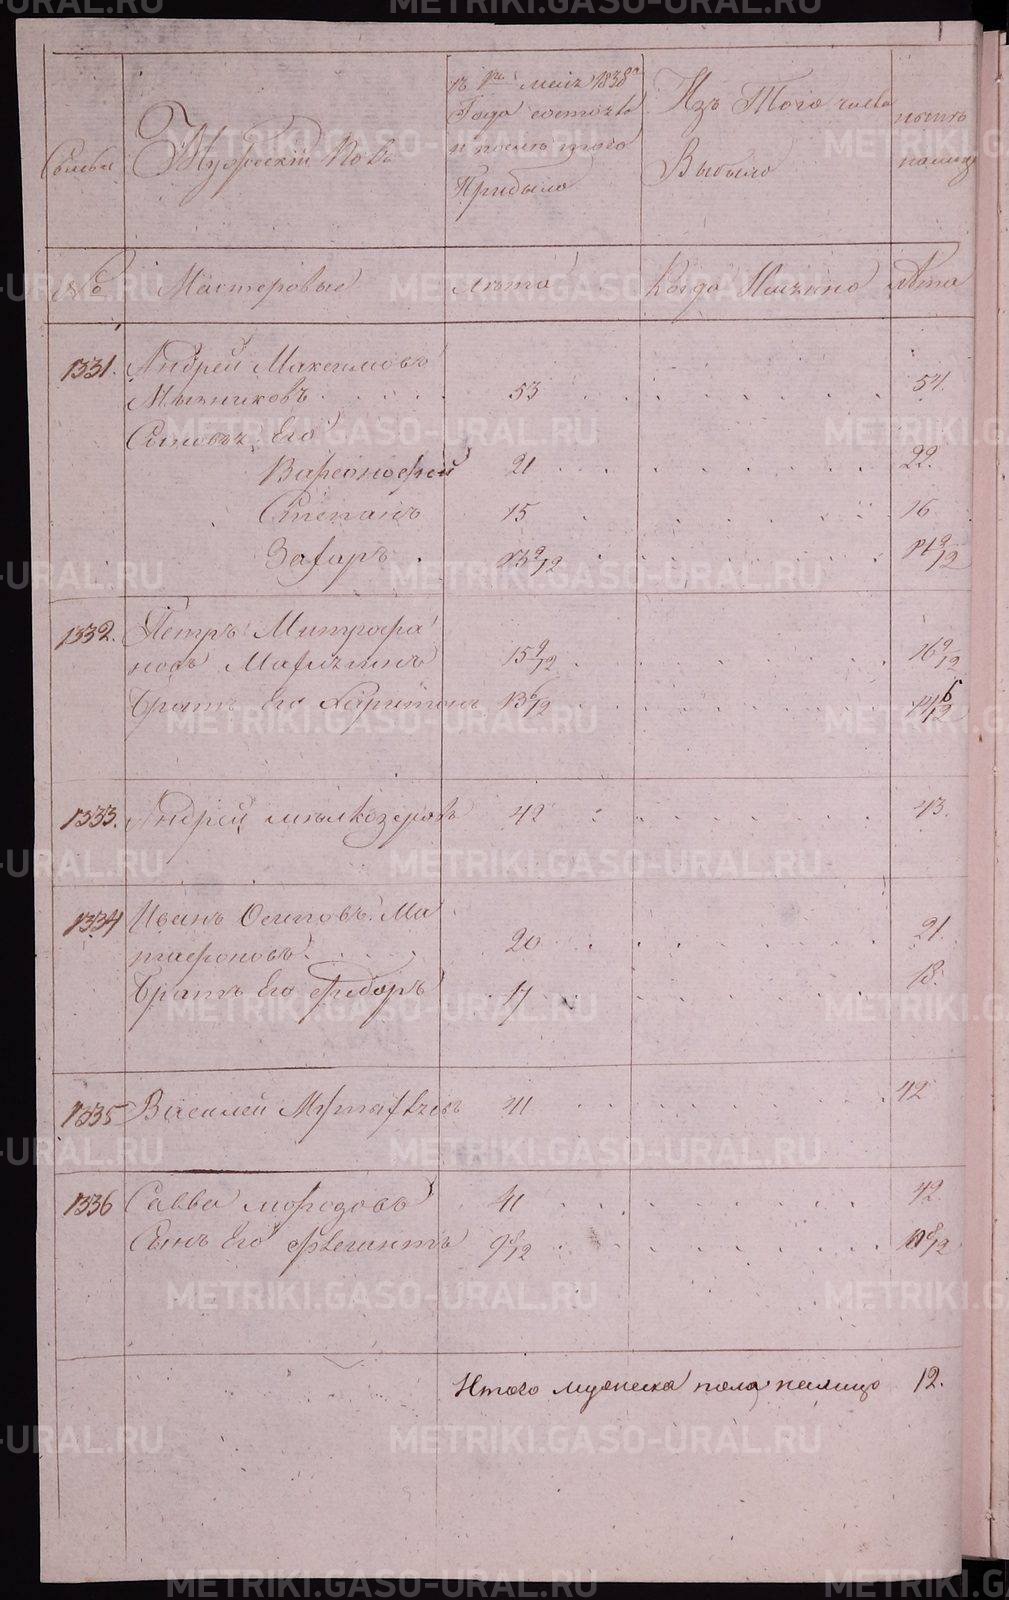 Семьи
Мужескiй Полъ
къ 1му маiя 1838го
Года состояло
и послѣ того
Прибыло
Изъ Того числа
Выбыло
нынѣ
налицо
№
Мастеровые
Лѣта
Когда Имянно
Лѣта
1331. Андрей Максимовъ
53 54.
Сыновья Его
21 22.
Степанъ 15 16
Захаръ 13 9/12 14 9/12
1332. Петръ Митрофа
новъ 15 9/12 16 9/12
Братъ Его Харитонъ 13 6/12 14 6/12
1333. Андрей 42 43.
1334 Иванъ Осиповъ Ма
20 21.
Братъ Его Федоръ 17 18.
1335 Василей 41 42
1336 Савва Морозовъ 41 42.
Сынъ Его 9 8/12 10 8/12
Итого мужеска пола налицо 12.
METRIKI.GASO-URAL.RU